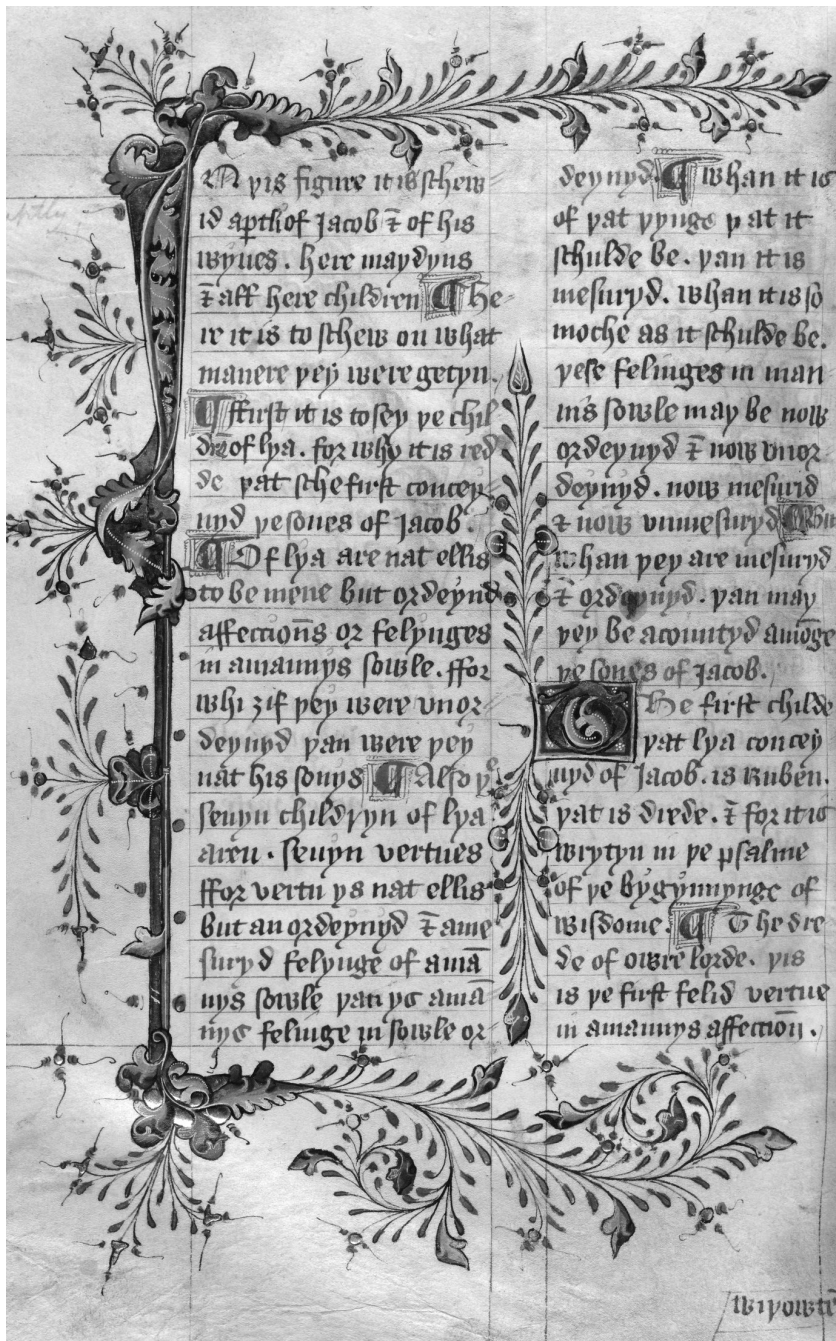 IN þis figure it is schew
id aptly of Jacob & of his
wyues. here maydyns
& all here children ¶ The
re it is to schew on what
manere þey were getyn.
¶ ffirst it is to sey þe chil
drē of lya. for why it is red
de þat sche first concey
uyd þe sones of Jacob.
¶ Of lya are nat ellis
to be mene but ordeynd
affeccioūs or felynges
in amannys sowle. ffor
whi ȝif þey were vnor
deynyd þan were þey
nat his sonys ¶ Also þᵉ
seuyn childryn of lya
aren . seuyn vertues
ffor vertu ys nat ellis
but an ordeynyd & ame
suryd felynge of amā
nys sowle þan ys amā
nys felinge in sowle or
deynyd. ¶ whan it is
of þat þynge þat it
schulde be. þan it is
mesuryd. whan it is so
moche as it schulde be.
þese felinges in man
nis sowle may be now
ordeynyd & now vnor
deynyd. now mesurid
& now vnmesuryd ¶ But
whan þey are mesuryd
& ordeynyd. þan may
þey be acountyd amōge
þe sones of Jacob.
The first childe
þat lya concey
uyd of Jacob. is Ruben.
þat is drede. & for it is
wrytyn in þe psalme
of þe bygynnynge of
wisdome. ¶ The dre
de of owre lorde. þis
is þe first felid vertue
in amannys affeccioū.
wiþowtē